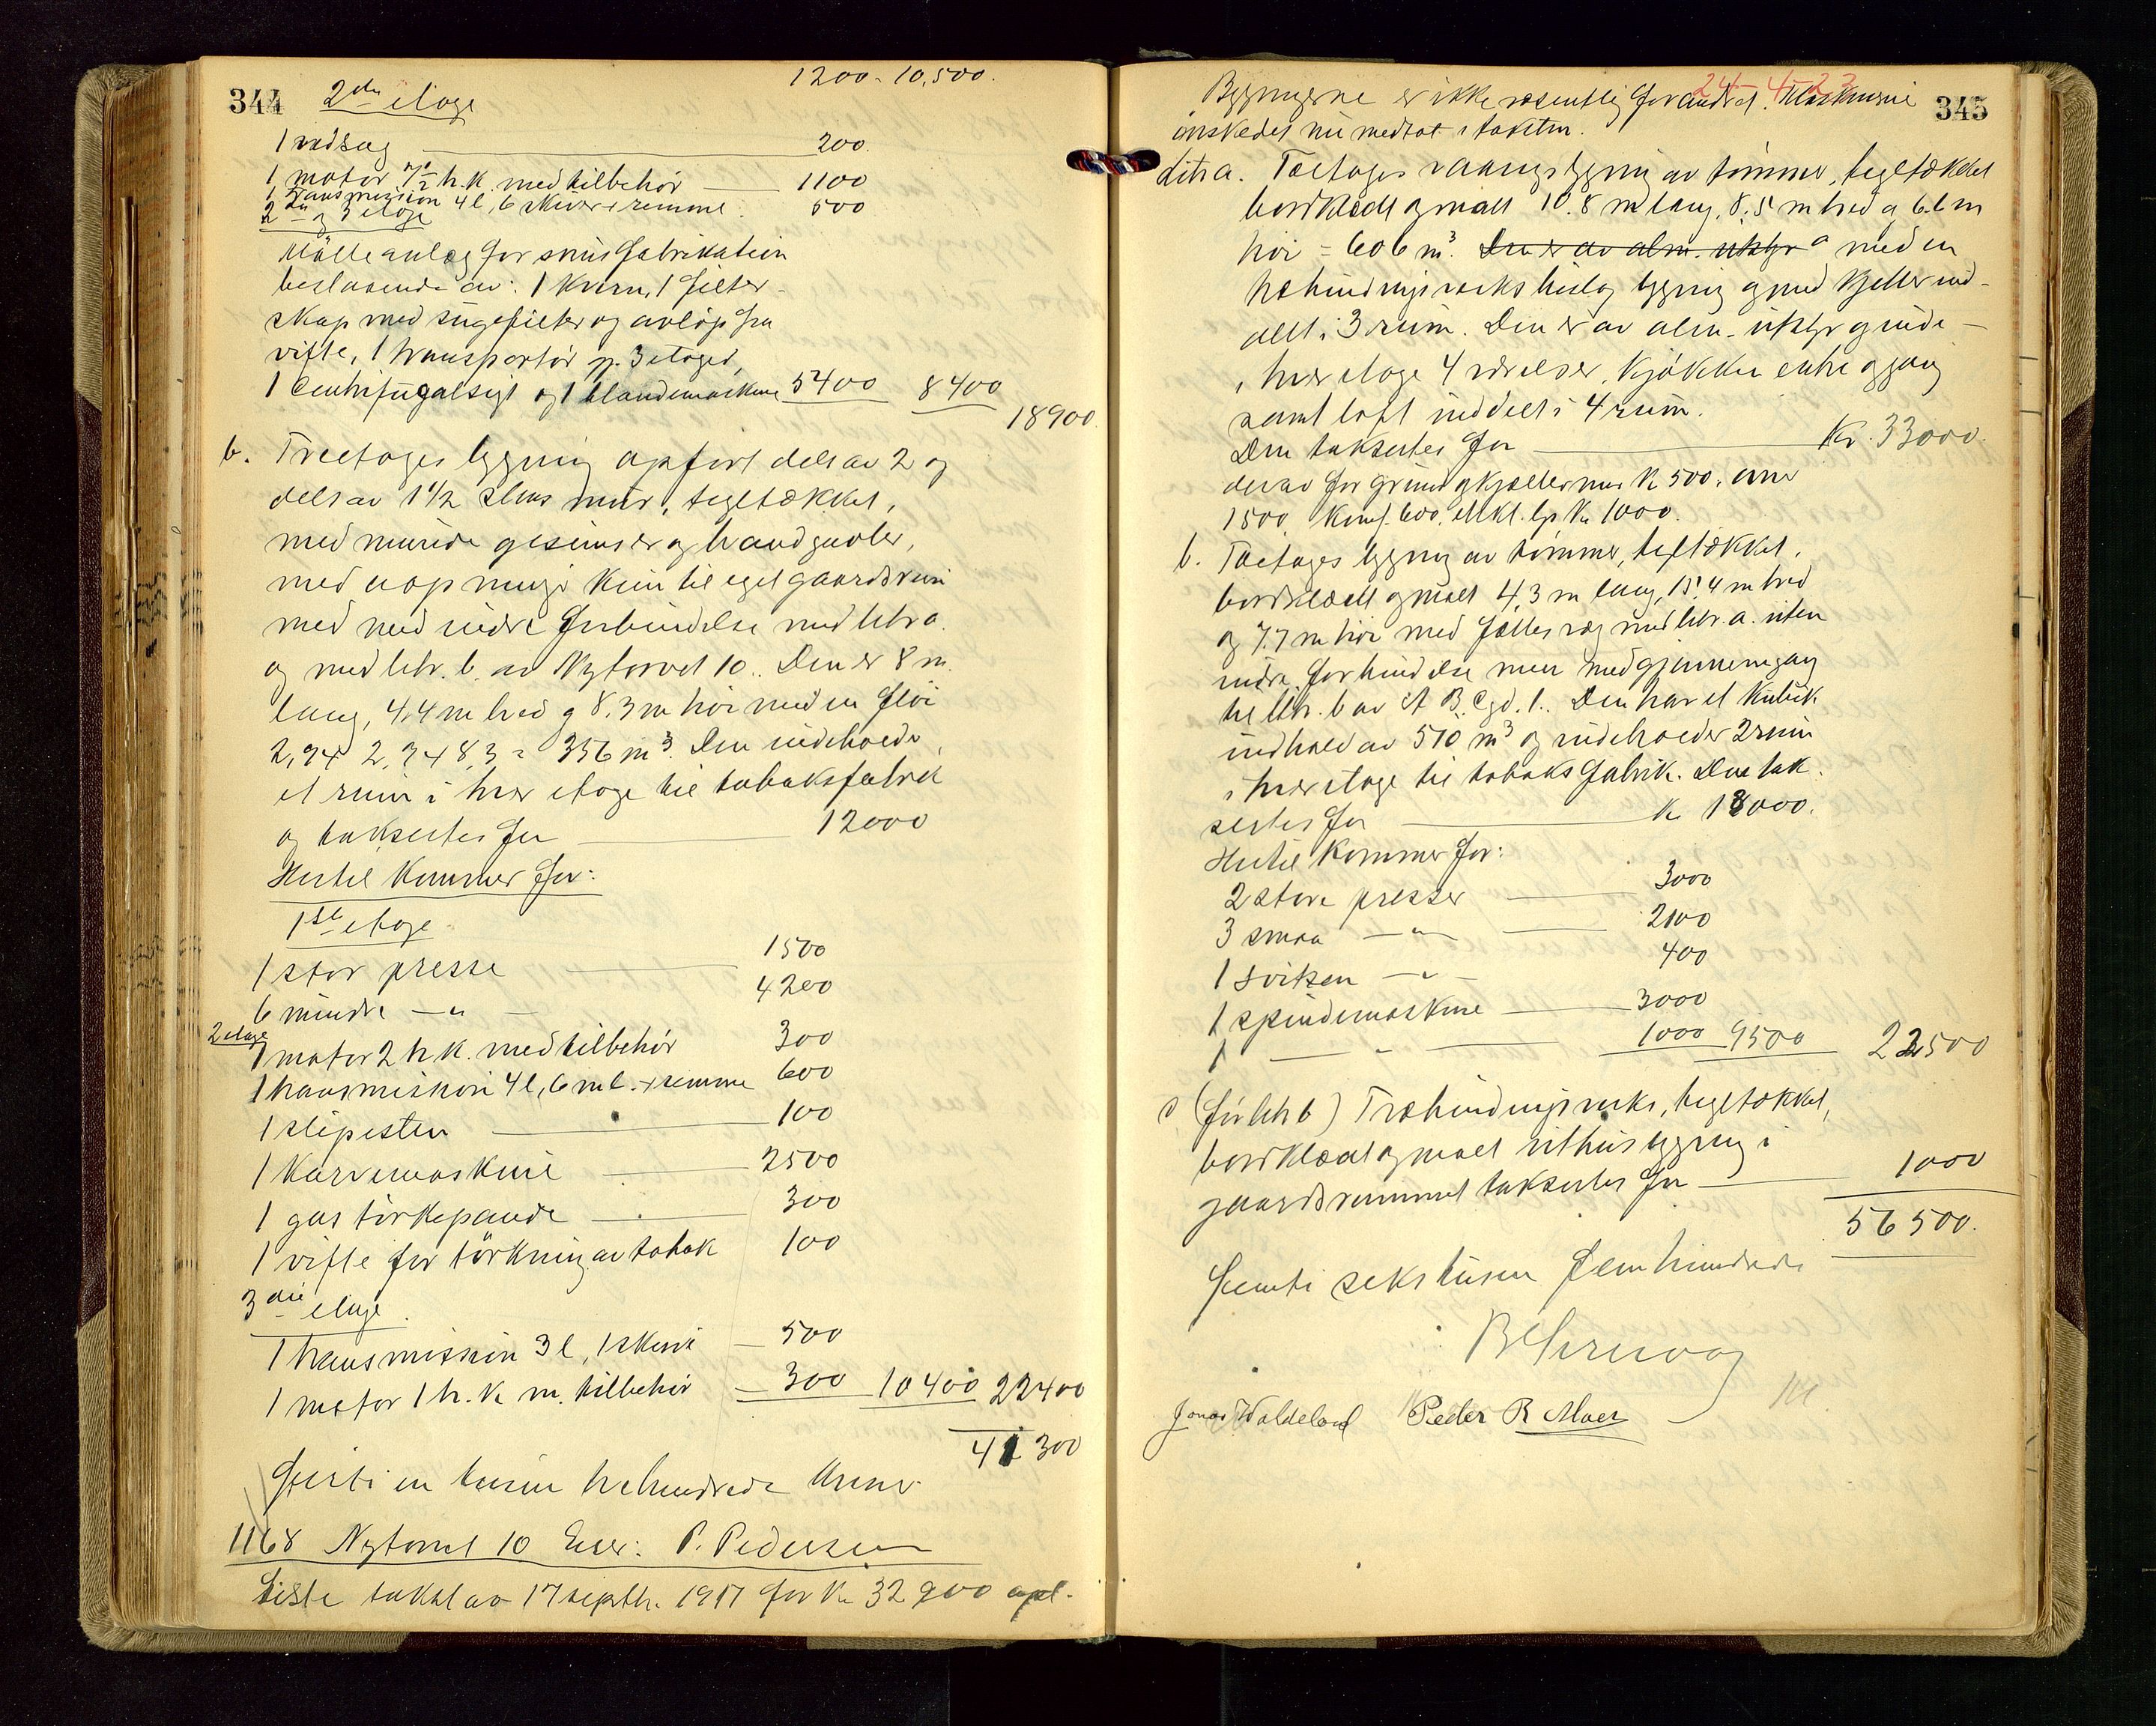 344 2den etage 1200 - 10,500.
1 vedsag 200.
1 motor 7 1/2 h.k. med tilbehör 1100
1 transmission 4 l, 6 skiver + remme. 500
2den og 3 etage
Mölleanlæg for snusfabrikation
bestaaende av: 1 kvern, 1 filter-
skap med sugefilter og avlöp fra
vifte, 1 transportör gj. 3 etager,
1 Centrifugalsigt og 1 blandemaskine 5400 8400
18900.
b. Treetages bygning opfört dels av 2 og
dels av 1 1/2 stens mur, tegltækket,
med murede gesimser og brandgavler,
med aapninger kun til eget gaardsrum
med med indre forbindelse med litr a.
og med litr. b. av Nytorvet 10.. Den er 8 m.
lang, 4,4 m bred og 8.3 m höi med en flöi
2,9 x 2,7 x 8,3 = 356 m3. Den indeholder
et rum i hver etage til tobaksfabrik
og taksertes for 12000
Hertil kommer for:
1ste etage
1 stor presse 1500
6 mindre —"— 4200
2 etage
1 motor 2 h.k. med tilbehör 300
1 transmission 4 l, 6 m l. + remme 600
1 slipesten 100
1 Karvemaskine 2500
1 gas törkepande 300
1 vifte for törkning av tobak 100
3die etage.
1 transmission 3 l, 1 skive 500
1 motor 1 h.k. m. tilbehör 300 10400 22400
41300
Firti en tusen trehundrede kroner.
1168 Nytorvet 10 Eier: P. Pedersen
Siste takst av 17 septbr. 1917 for Kr 32900 opl.
24-4-23
Bygningerne er ikke væsentlig forandret. Maskineri 345
önskedes nu medtat i taksten.
Litr a. Toetages vaaningsbygning av tömmer, tegltækket
bordklædt og malt 10.8 m lang, 8.5 m bred og 6.6 m
höi = 606 m3. Den er av alm. utstyr a med en
træbindingsverks tilbygning og med kjeller ind-
delt i 3 rum. Den er av alm. utstyr og inde-
i hver etage 4 værelser, kjökken entre og gang
samt loft inddelt i 4 rum.
Den taksertes for Kr. 33000.
derav for grund og kjellermur Kr 500. ovner
1500 komf. 600. elekt. lys Kr 1000.
b. Toetages bygning av tömmer, tegltækket,
bordklædt og malt 4,3 m lang, 15,4 m bred
og 7.7 m höi med fælles væg med litr. a. uten
indre forbindelse men med gjennemgang
til litr. b av A B. C gd. 1.. Den har et kubik
indhold av 510 m3 og indeholder 2 rum
i hver etage til tobaksfabrik. Den tak-
sertes for Kr 13000.
Hertil kommer for:
2 store presser 3000
3 smaa —"— 2100
1 —"— 400
1 spindemaskine 3000
1 —"— 1000 9500 22500
c (för litr b) Træbindingsverks, tegltækket,
bordklædt og malt uthusbygning i
gaardsrummet taksertes for 1000
56500.
Femti seks tusen fem hundrede
Jonas Waldeland Peder R Moen